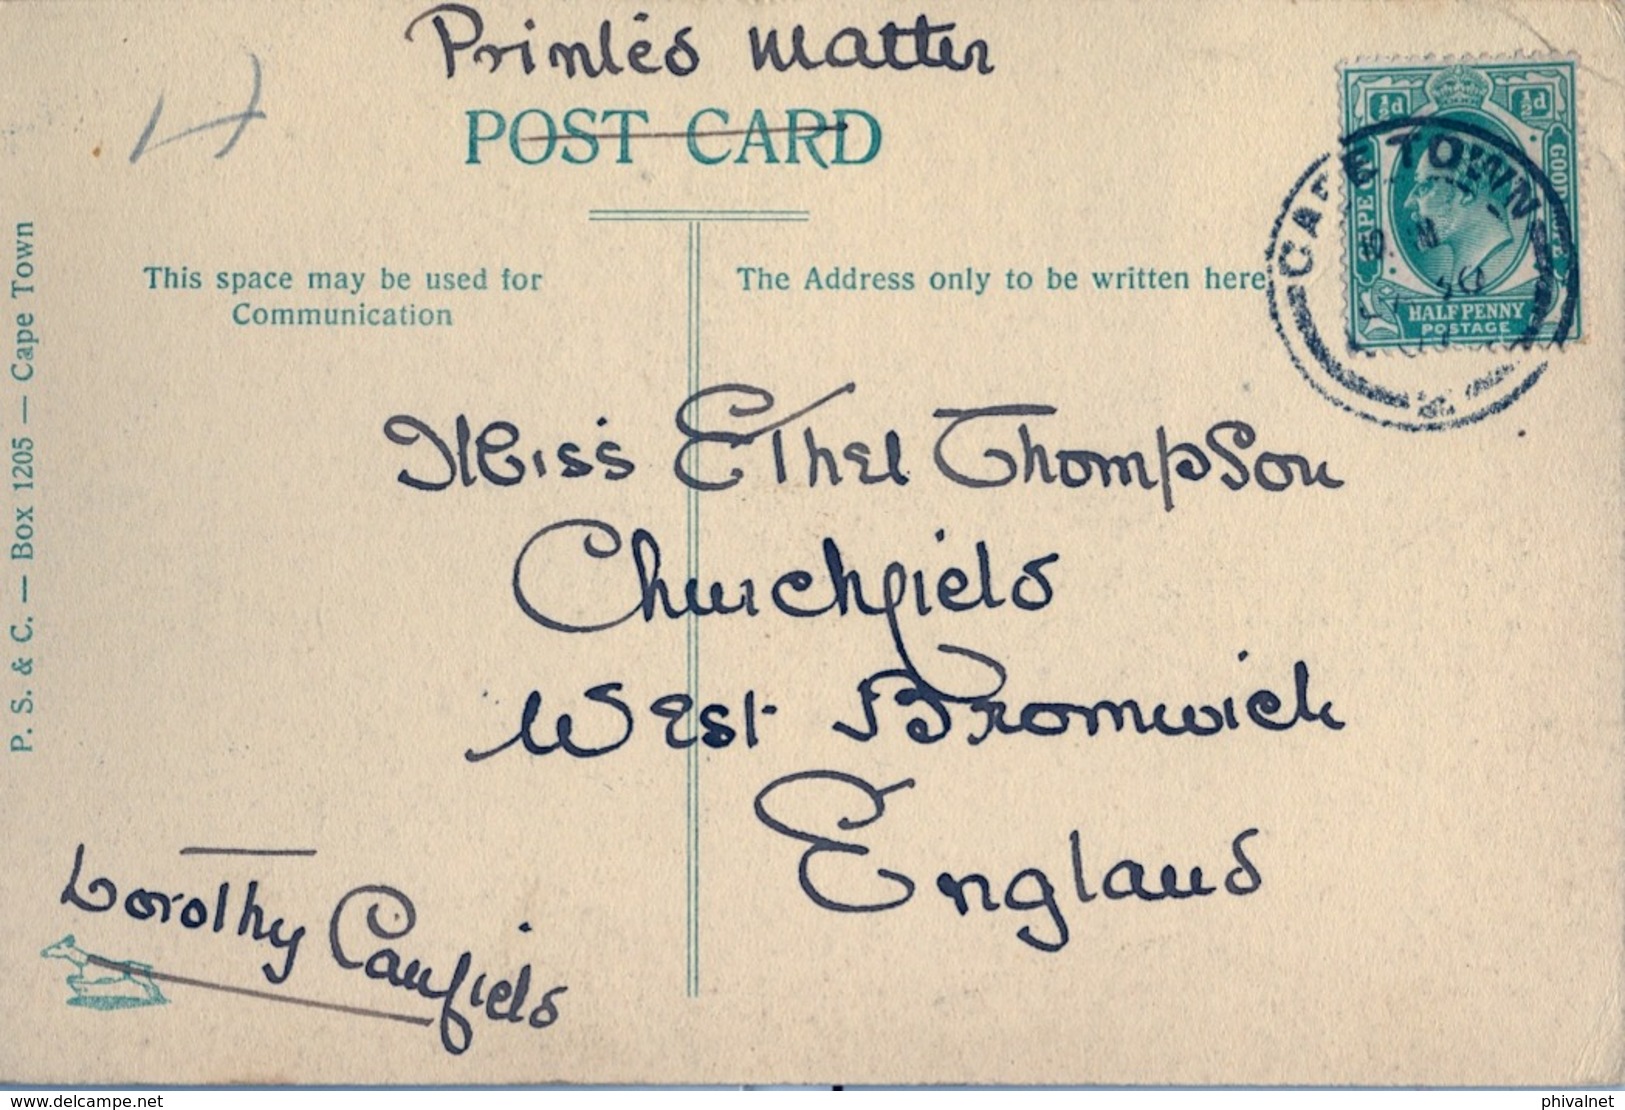 Printed Matter
POST CARD
This space may be used for
Communication
The Address only to be written here
½d ½d
CAPE OF GOOD HOPE
HALFPENNY
POSTAGE
CAPE TOWN
P. S. & C. — Box 1205 — Cape Town
Miss Ethel Thompson
Churchfield
West Bromwich
England
Dorothy Canfield
www.delcampe.net
phivalnet